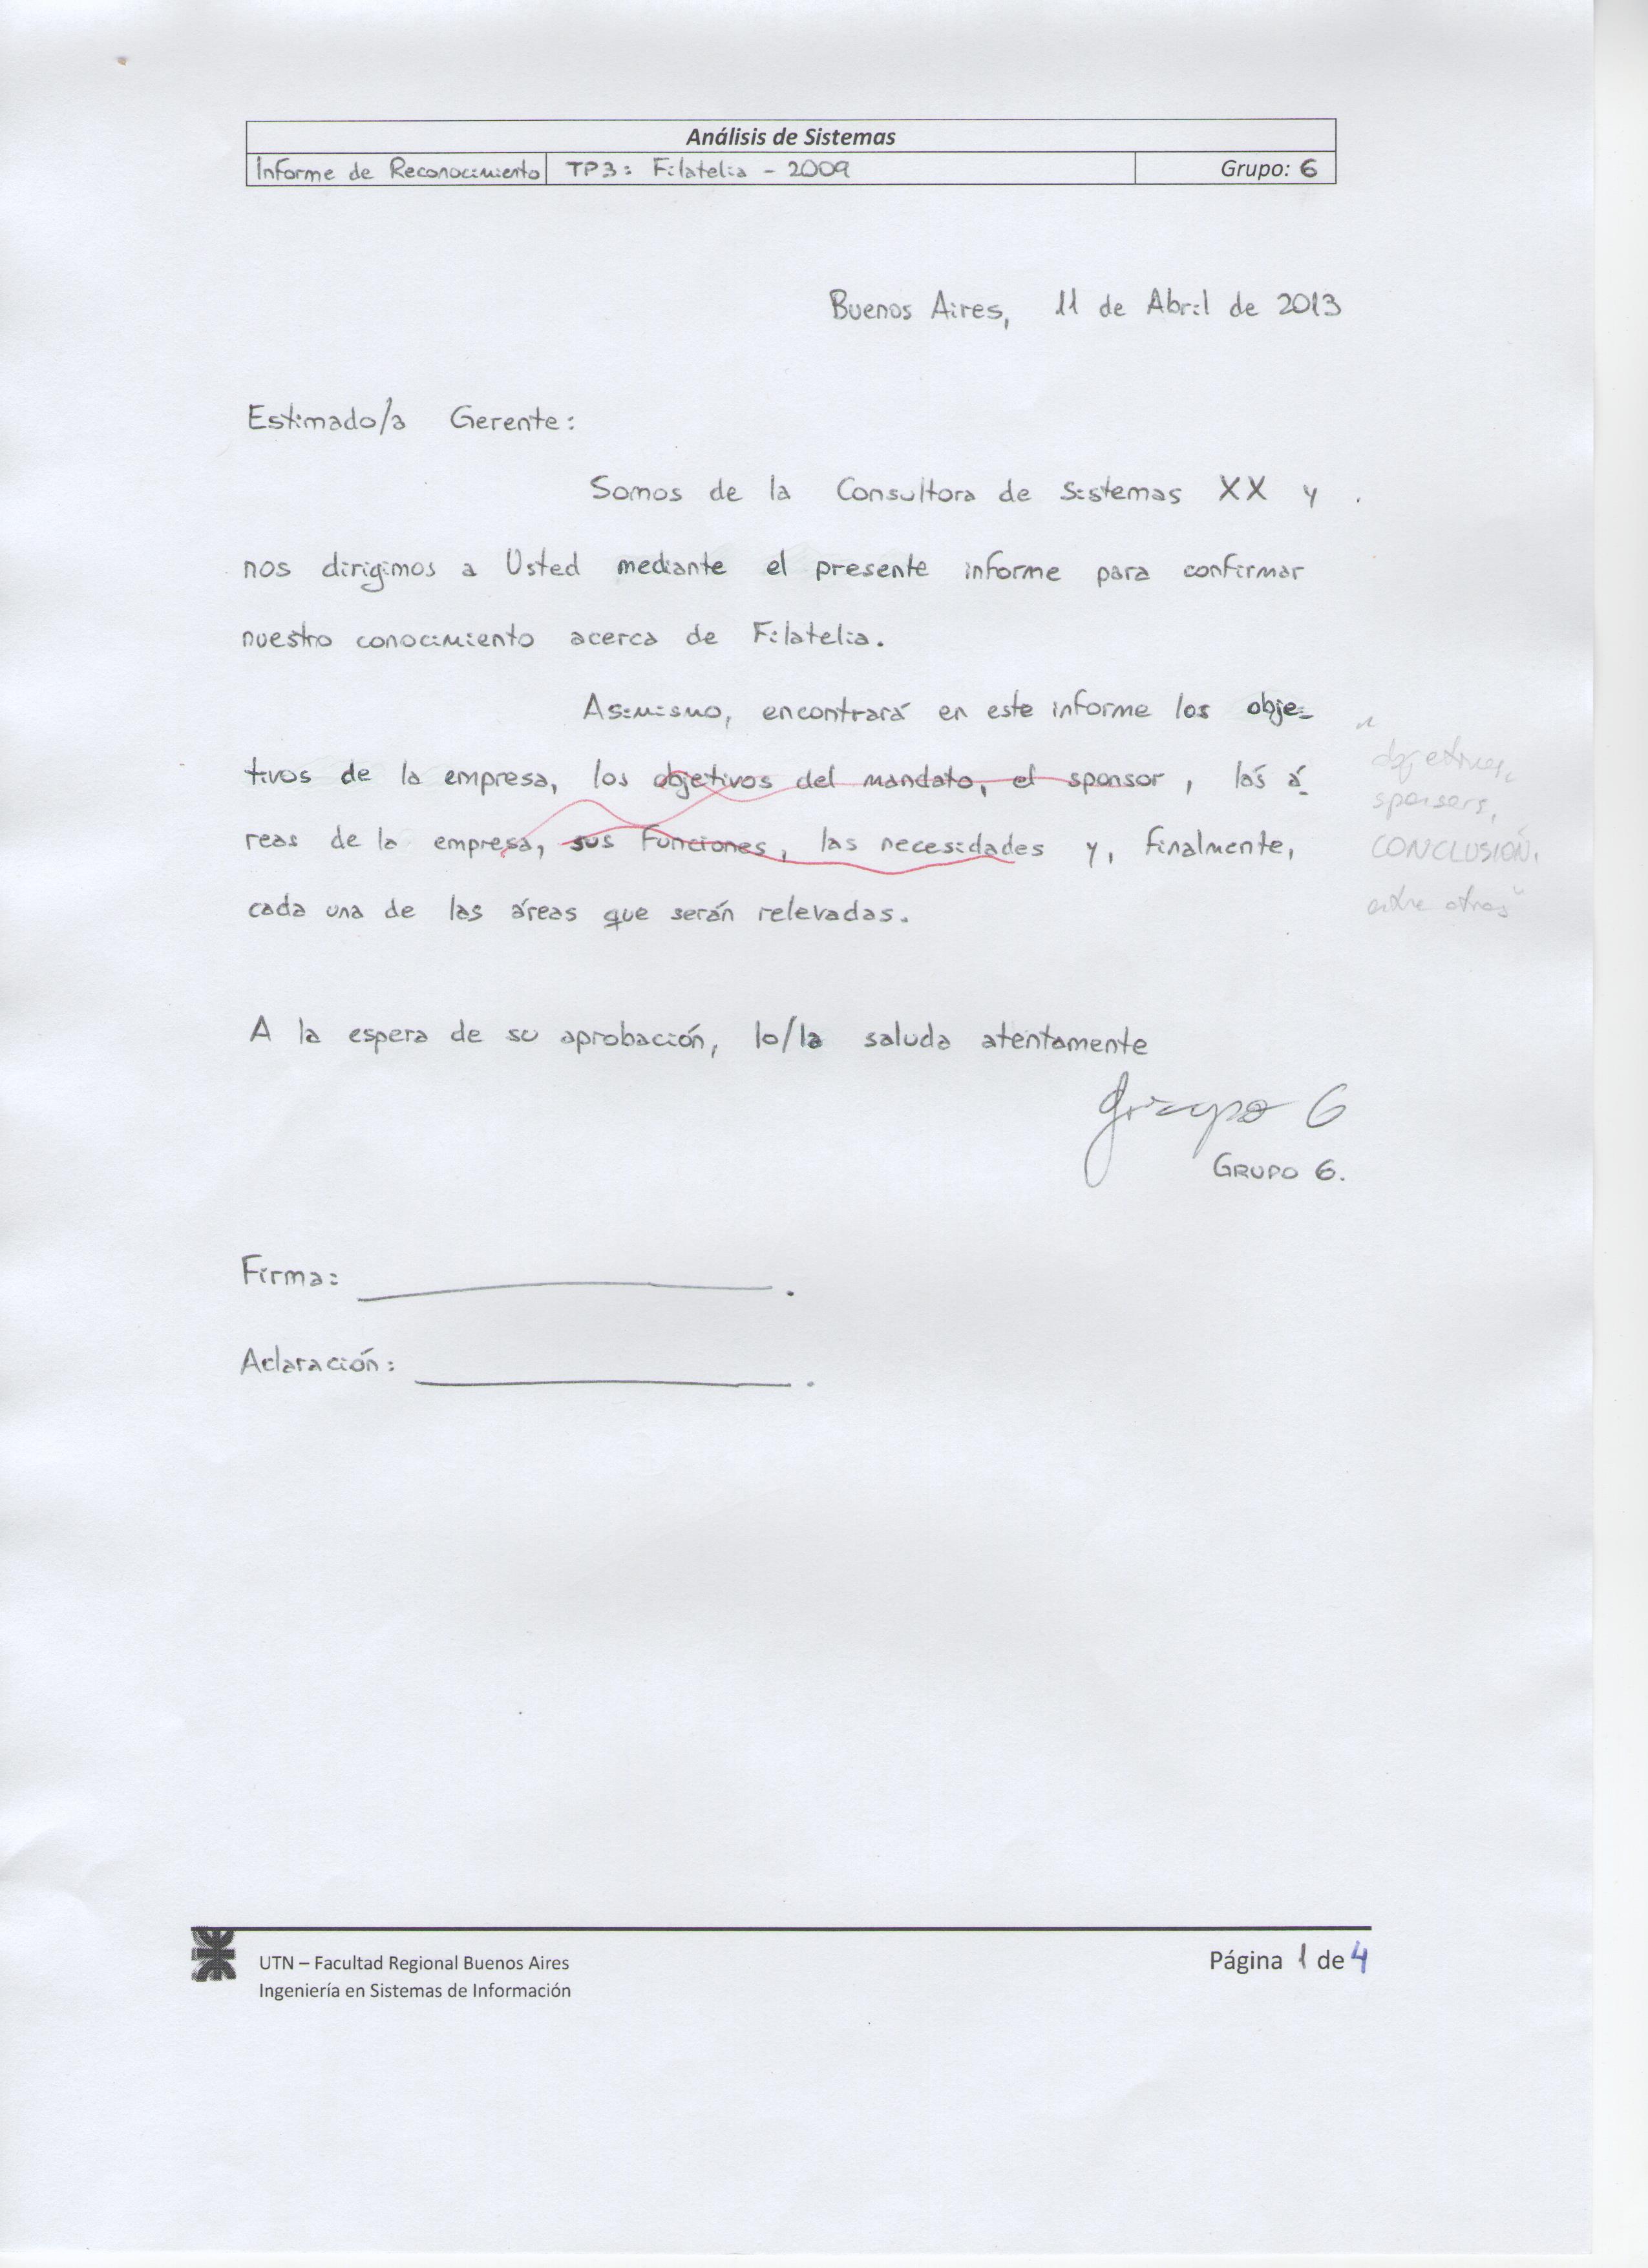 Análisis de Sistemas
Informe de Reconocimiento TP3: Filatelia - 2009 Grupo: 6
Buenos Aires, 11 de Abril de 2013
Estimado/a Gerente:
Somos de la Consultora de Sistemas XX y
nos dirigimos a Usted mediante el presente informe para confirmar
nuestro conocimiento acerca de Filatelia.
Asimismo, encontrará en este informe los obje-
tivos de la empresa, los objetivos del mandato, el sponsor, las á-
reas de la empresa, sus funciones, las necesidades y, finalmente,
cada una de las áreas que serán relevadas.
"objetivos,
sponsors,
CONCLUSIÓN,
entre otros"
A la espera de su aprobación, lo/la saluda atentamente
Grupo 6
GRUPO 6.
Firma: ____________.
Aclaración: ____________.
UTN – Facultad Regional Buenos Aires Página 1 de 4
Ingeniería en Sistemas de Información